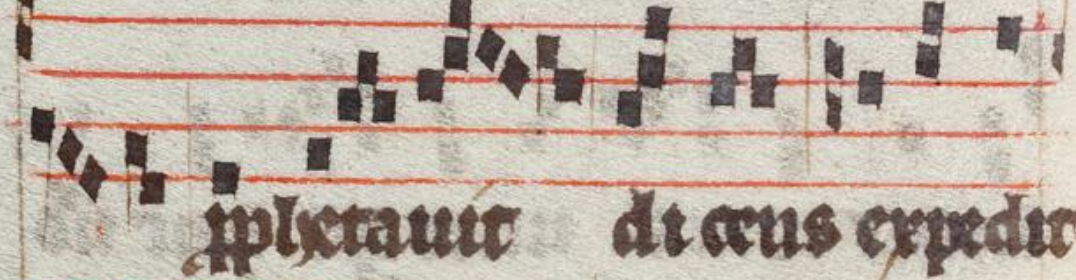 pphetauit di cens expedit